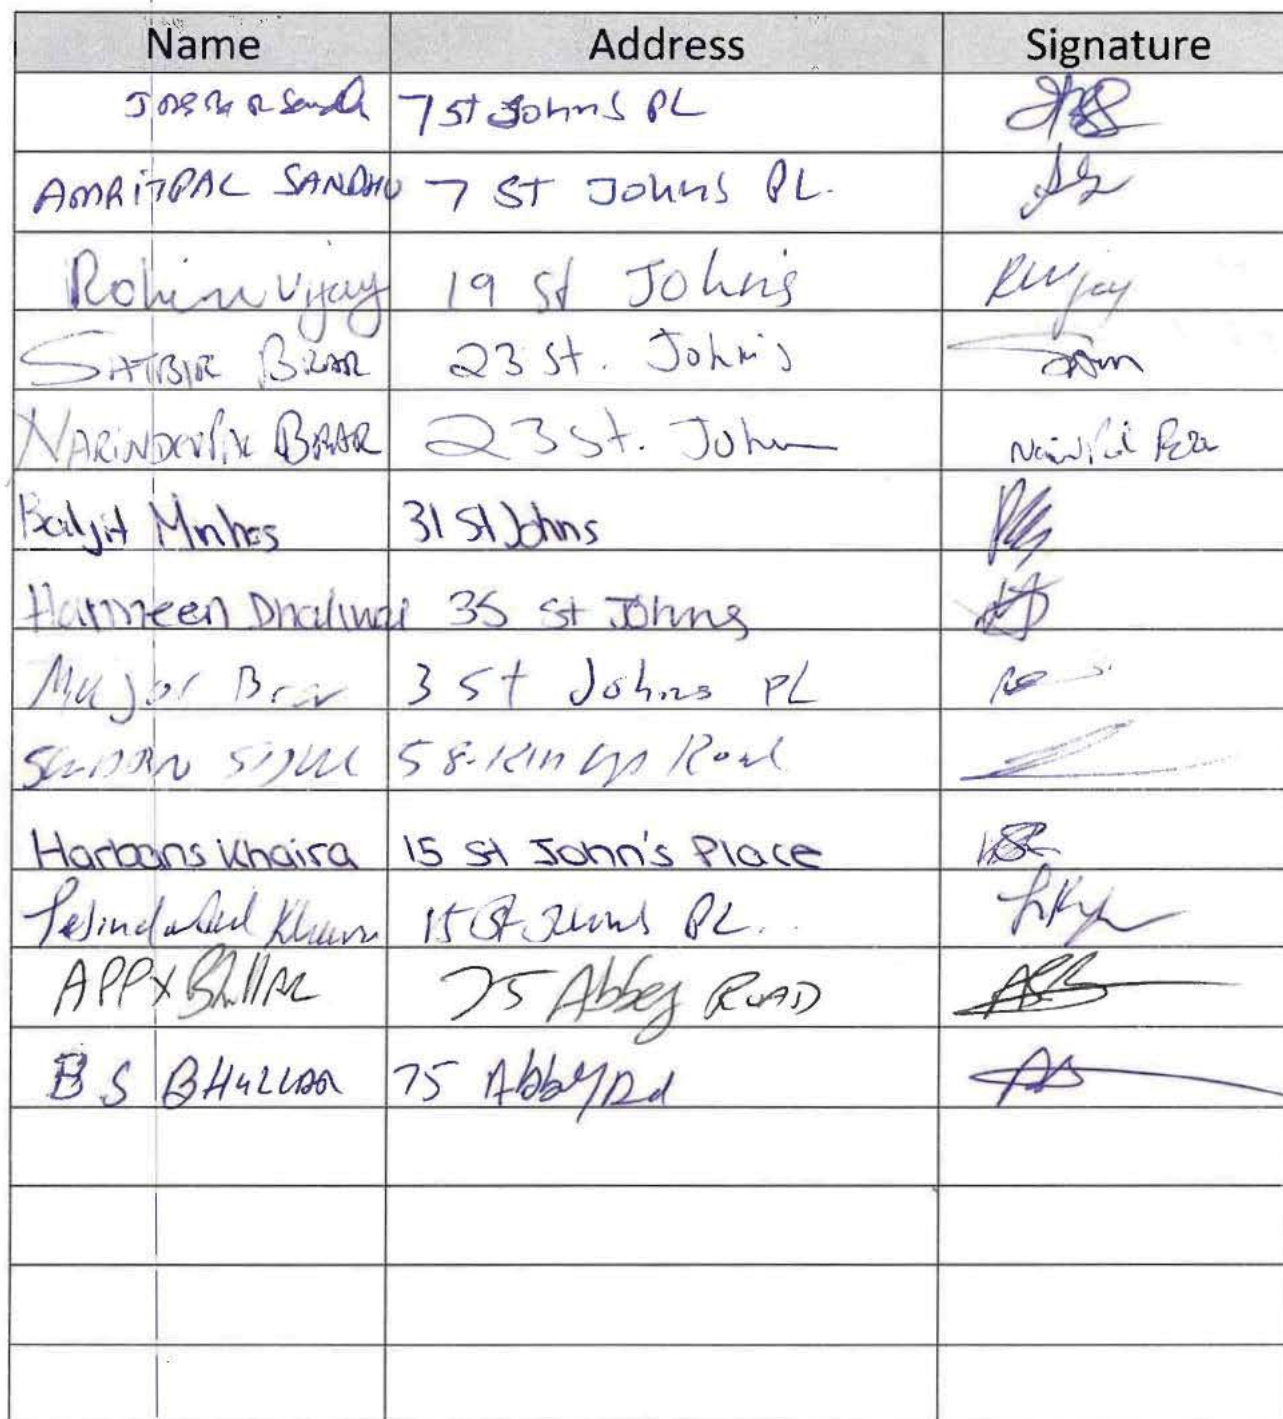 Name Address Signature
7 St Johns PL
AMRITPAL SANDHU 7 ST Johns PL.
Rohin Vijay 19 St John's RVijay
SATBIR BRAR 23 St. John's
BRAR 23 St. John
Baljit Minhas 31 St Johns
Harmeen Dhaliwal 35 St Johns
Major Brar 3 St Johns PL
58 Kings Road
Harbans Khaira 15 St John's Place
15 St Johns PL.
75 Abbey ROAD
B S BHULLAR 75 Abbey Rd